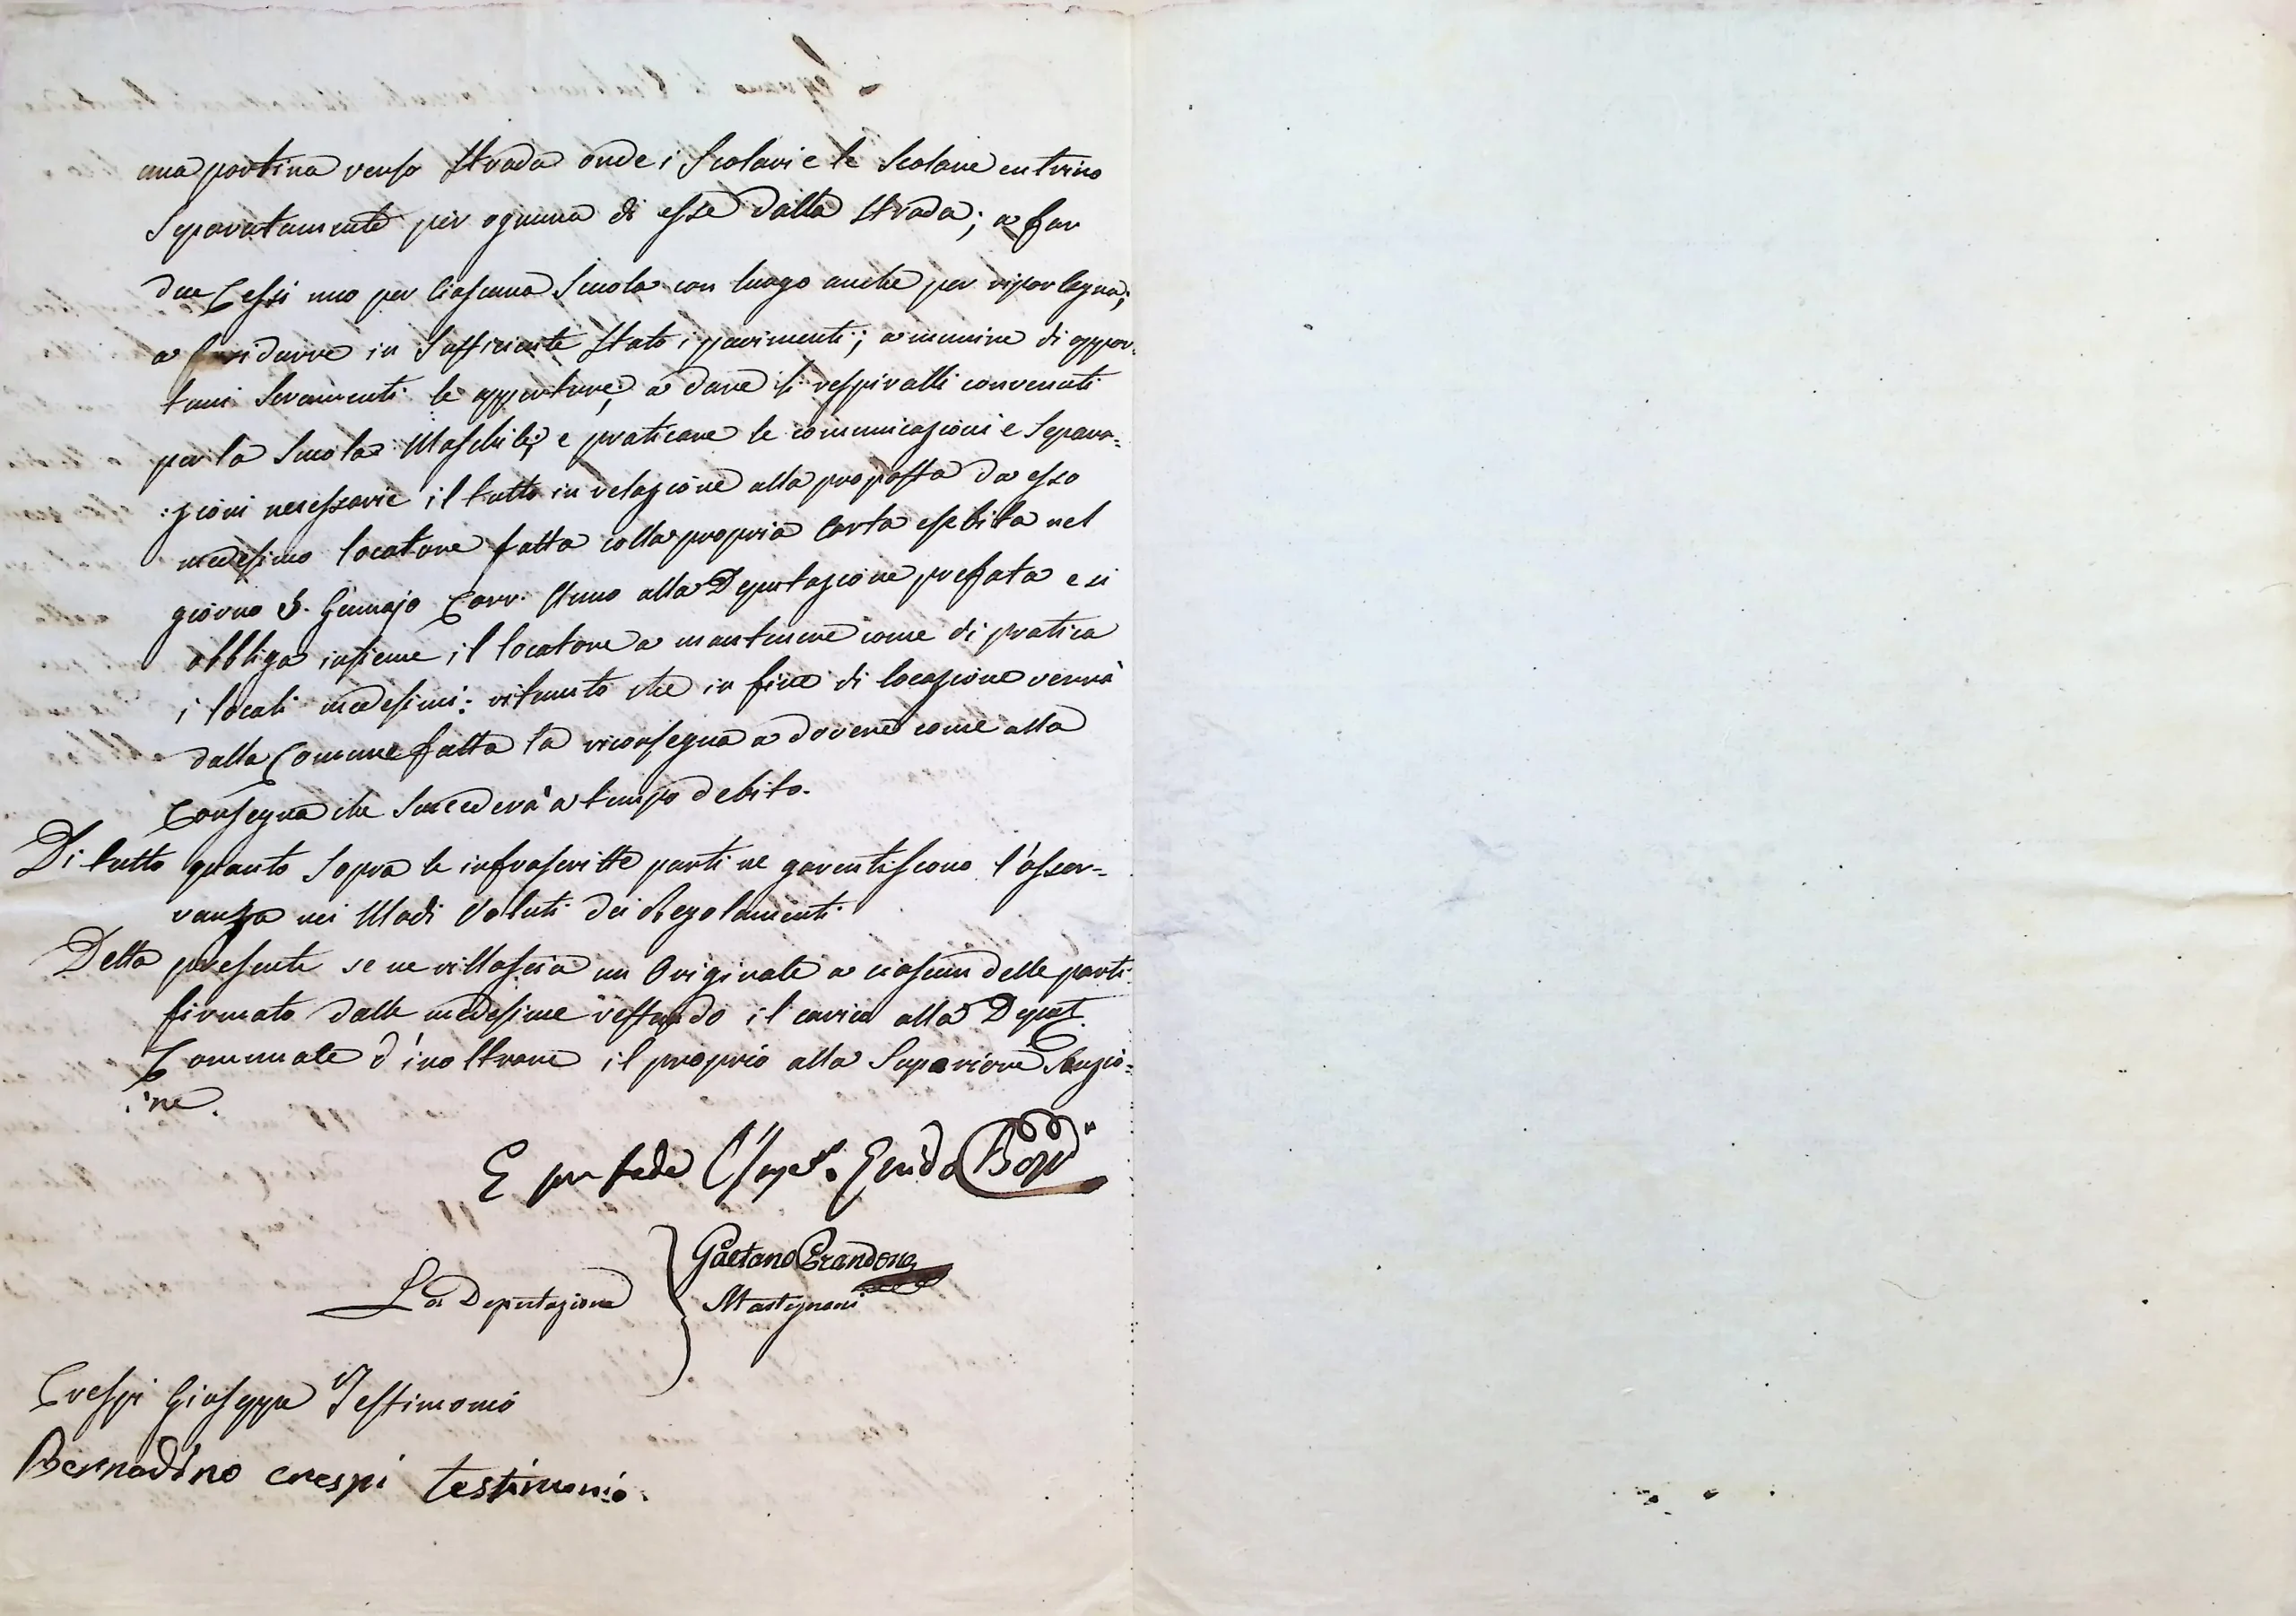 una portina verso Strada onde i Scolari e le Scolare entrino
Separatamente per ognuna di esse dalla Strada; a far
due Cessi uno per Ciascuna Scuola con luogo anche per ripor legna;
a ridurre in Sufficiente Stato i pavimenti; a munire di oppor=
tuni Seramenti le apperture; a dare li respiratti convenuti
per la Scuola Maschile; e praticare le comunicazioni e Separa=
:zioni necessarie il tutto in relazione alla proposta da esso
medesimo locatore fatta colla propria Carta esebita nel
giorno 5. Gennajo Corr. Anno alla Deputazione prefata e si
obbliga insieme il locatore a mantenere come di pratica
i locali medesimi: ritenuto che in fine di locazione verrà
dalla Comune fatta la riconsegna a dovere come alla
Consegna che Succederà a tempo debito.
Di tutto quanto Sopra le infrascritte parti ne garentiscono l'osser=
vanza nei Modi Voluti dei Regolamenti
Della presente se ne rillascia un Originale a ciascun delle parti
firmato dalle medesime restando il carico alla Deput.
Comunale d'inoltrare il proprio alla Superiore Sanzio=
:ne.
E per fede Guido
La Deputazione
Gaetano Brandona
Mastignoni
Crespi Giuseppe Testimonio
Bernardino crespi testimonio.